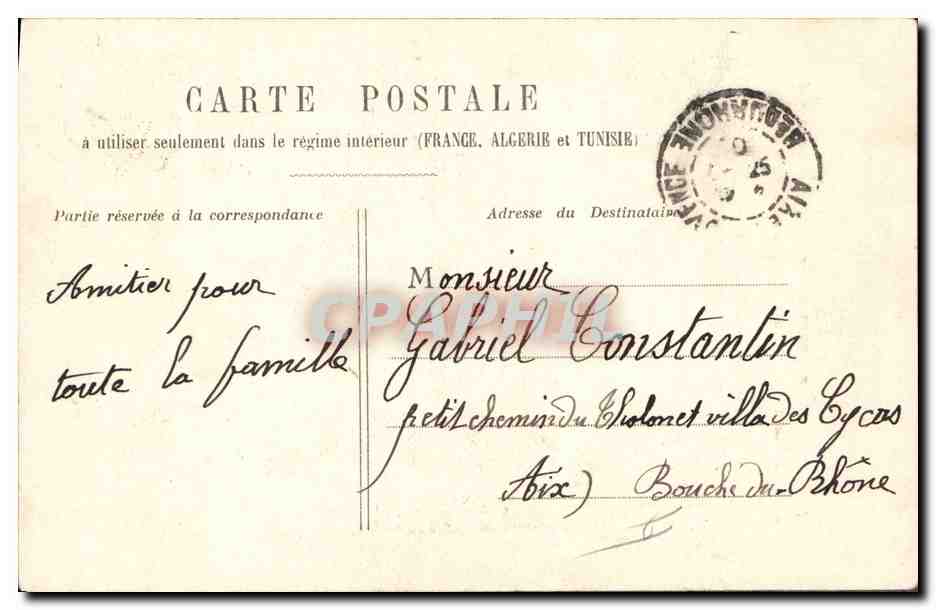 CARTE POSTALE
à utiliser seulement dans le régime intérieur (FRANCE, ALGERIE et TUNISIE)
Partie réservée à la correspondance
Amitier pour
toute la famille
Adresse du Destinataire
Monsieur
Gabriel Constantin
petit chemin du Tholonet villa des Cycas
Aix) Bouche du-Rhône
CPAPHIL